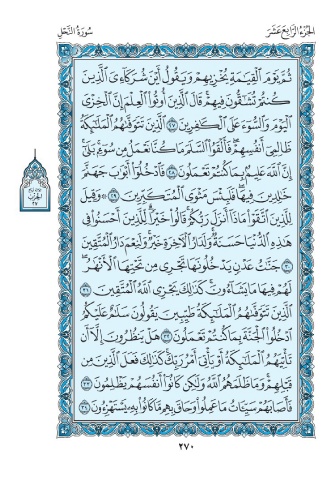 الجزء الرابع عشر
سورة النحل
ثُمَّ يَوْمَ الْقِيَامَةِ يُخْزِيهِمْ وَيَقُولُ أَيْنَ شُرَكَاءِيَ الَّذِينَ
كُنتُمْ تُشَاقُّونَ فِيهِمْ قَالَ الَّذِينَ أُوتُوا الْعِلْمَ إِنَّ الْخِزْيَ
الْيَوْمَ وَالسُّوءَ عَلَى الْكَافِرِينَ ٢٧ الَّذِينَ تَتَوَفَّاهُمُ الْمَلَائِكَةُ
ظَالِمِي أَنفُسِهِمْ فَأَلْقَوُا السَّلَمَ مَا كُنَّا نَعْمَلُ مِن سُوءٍ بَلَىٰ
إِنَّ اللَّهَ عَلِيمٌ بِمَا كُنتُمْ تَعْمَلُونَ ٢٨ فَادْخُلُوا أَبْوَابَ جَهَنَّمَ
خَالِدِينَ فِيهَا فَلَبِئْسَ مَثْوَى الْمُتَكَبِّرِينَ ٢٩ ۞ وَقِيلَ
لِلَّذِينَ اتَّقَوْا مَاذَا أَنزَلَ رَبُّكُمْ قَالُوا خَيْرًا لِّلَّذِينَ أَحْسَنُوا فِي
هَٰذِهِ الدُّنْيَا حَسَنَةٌ وَلَدَارُ الْآخِرَةِ خَيْرٌ وَلَنِعْمَ دَارُ الْمُتَّقِينَ
٣٠ جَنَّاتُ عَدْنٍ يَدْخُلُونَهَا تَجْرِي مِن تَحْتِهَا الْأَنْهَارُ
لَهُمْ فِيهَا مَا يَشَاءُونَ كَذَٰلِكَ يَجْزِي اللَّهُ الْمُتَّقِينَ ٣١
الَّذِينَ تَتَوَفَّاهُمُ الْمَلَائِكَةُ طَيِّبِينَ يَقُولُونَ سَلَامٌ عَلَيْكُمُ
ادْخُلُوا الْجَنَّةَ بِمَا كُنتُمْ تَعْمَلُونَ ٣٢ هَلْ يَنظُرُونَ إِلَّا أَن
تَأْتِيَهُمُ الْمَلَائِكَةُ أَوْ يَأْتِيَ أَمْرُ رَبِّكَ كَذَٰلِكَ فَعَلَ الَّذِينَ مِن
قَبْلِهِمْ وَمَا ظَلَمَهُمُ اللَّهُ وَلَٰكِن كَانُوا أَنفُسَهُمْ يَظْلِمُونَ ٣٣
فَأَصَابَهُمْ سَيِّئَاتُ مَا عَمِلُوا وَحَاقَ بِهِم مَّا كَانُوا بِهِ يَسْتَهْزِءُونَ ٣٤
الحزب
٢٧
٢٧٠